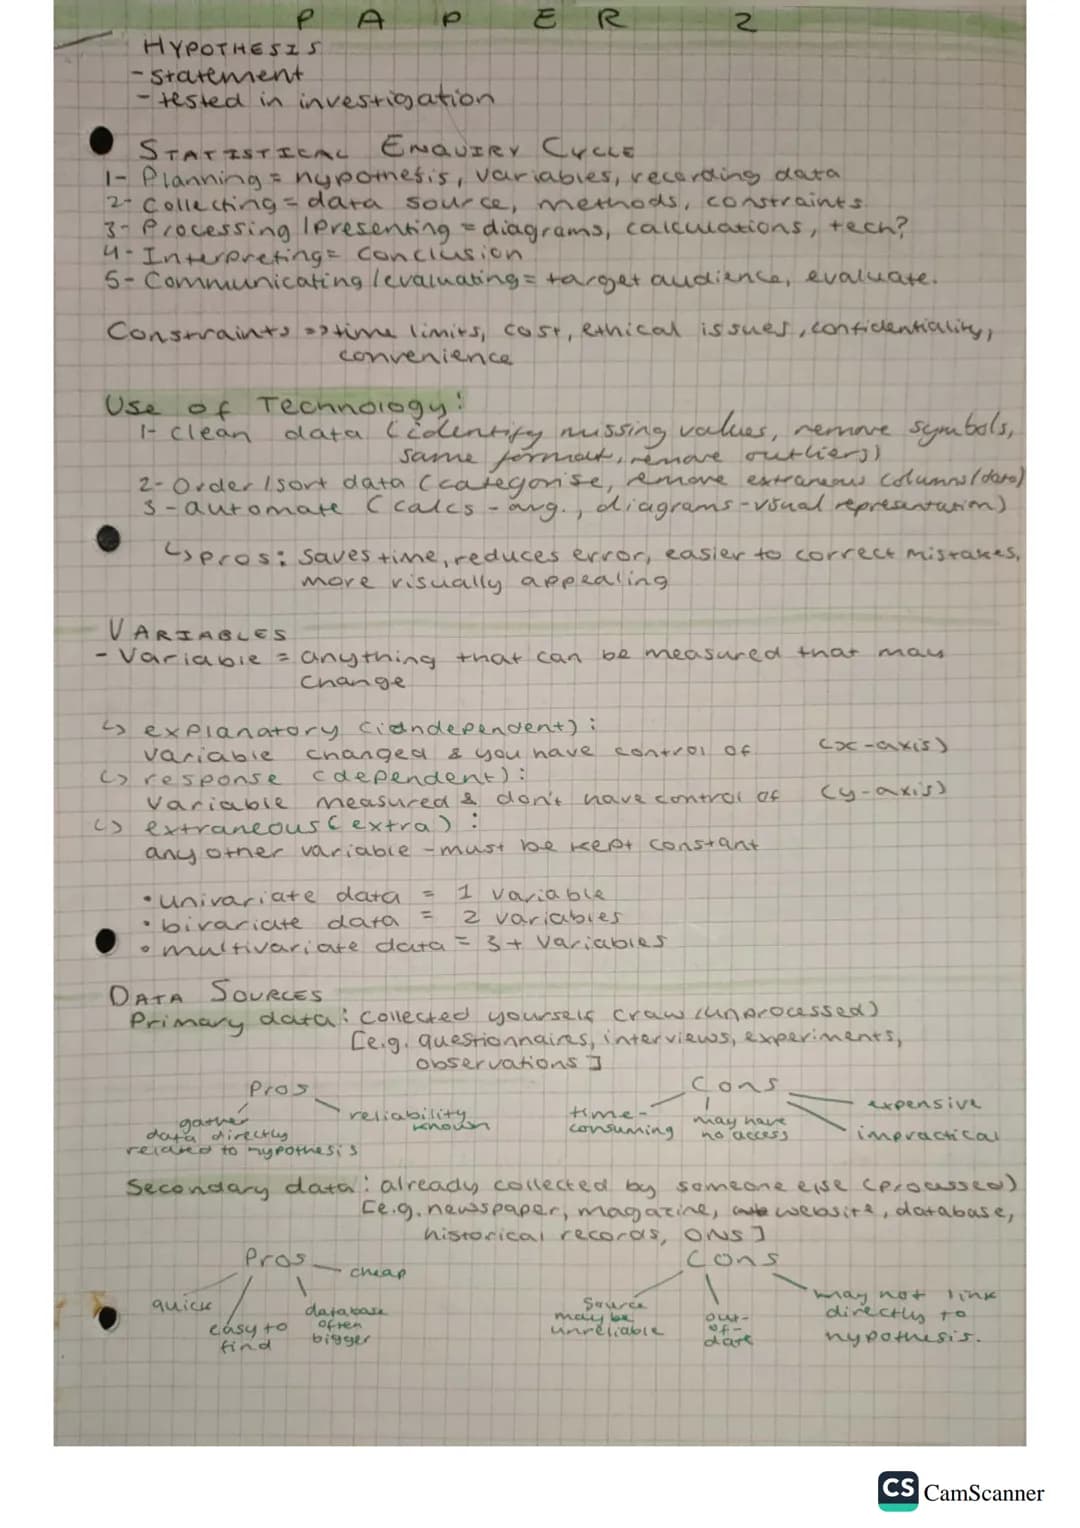 PAPER 2
HYPOTHESIS
- statement
- tested in investigation
STATISTICAL ENQUIRY CYCLE
1- Planning = hypothesis, variables, recording data
2- Collecting = data source, methods, constraints
3- Processing / Presenting = diagrams, calculations, tech?
4- Interpreting = conclusion
5- Communicating / evaluating = target audience, evaluate.
Constraints => time limits, cost, ethical issues, confidentiality,
convenience
Use of Technology:
1- clean data (identify missing values, remove symbols,
same format, remove outliers)
2- Order / sort data (categorise, remove extraneous columns/data)
3- automate (calcs - avg., diagrams - visual representation)
↳ pros: saves time, reduces error, easier to correct mistakes,
more visually appealing
VARIABLES
- Variable = anything that can be measured that may
change
↳ explanatory (independent):
variable changed & you have control of (x-axis)
↳ response (dependent):
variable measured & don't have control of (y-axis)
↳ extraneous (extra):
any other variable - must be kept constant
• univariate data = 1 variable
• bivariate data = 2 variables
• multivariate data = 3+ variables
DATA SOURCES
Primary data: collected yourself (raw/unprocessed)
[e.g. questionnaires, interviews, experiments,
observations]
Pros
gather
data directly
related to hypothesis
reliability
known
Cons
time-
consuming
may have
no access
expensive
impractical
Secondary data: already collected by someone else (processed)
[e.g. newspaper, magazine, website, database,
historical records, ONS]
Pros
quick
easy to
find
database
often
bigger
cheap
Cons
Source
may be
unreliable
out-
of-
date
may not link
directly to
hypothesis.
CS CamScanner